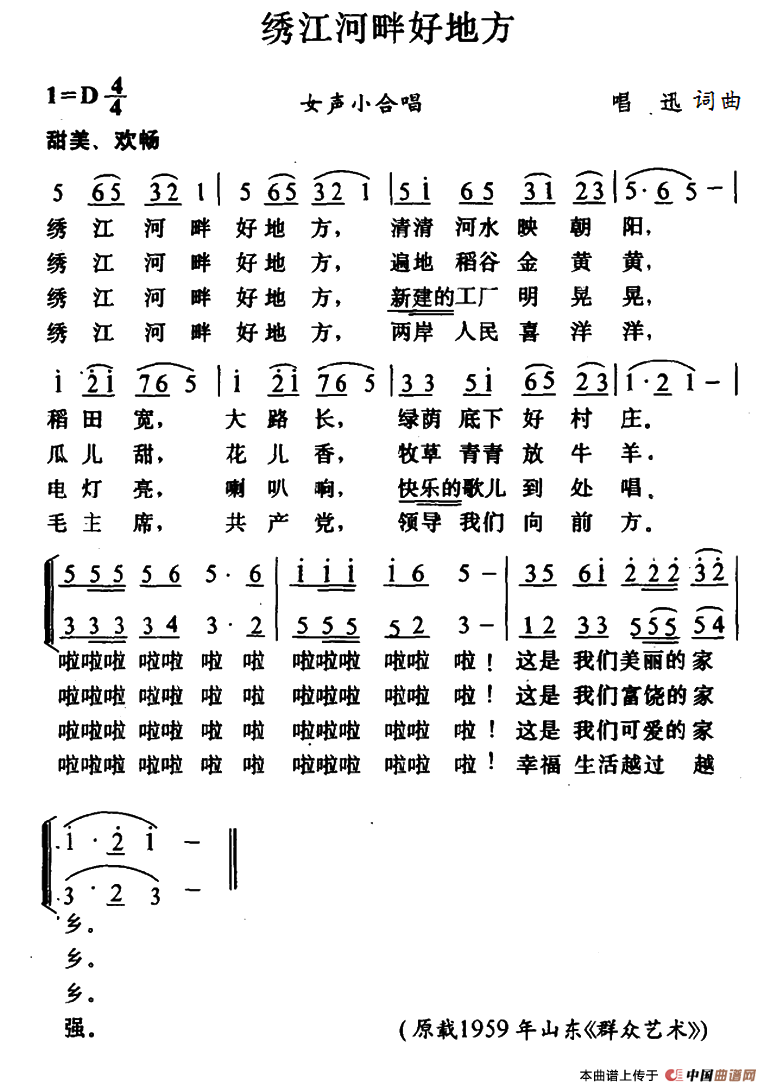 绣江河畔好地方
1=D 4/4 女声小合唱 唱 迅 词曲
甜美、欢畅
5 65 32 1 | 5 65 32 1 | 5i 65 31 23 | 5·6 5 – |
绣 江 河 畔 好 地 方, 清清 河水 映 朝 阳,
绣 江 河 畔 好 地 方, 遍地 稻谷 金 黄 黄,
绣 江 河 畔 好 地 方, 新建的工厂 明 晃 晃,
绣 江 河 畔 好 地 方, 两岸 人民 喜 洋 洋,
i 2i 76 5 | i 2i 76 5 | 33 5i 65 23 | 1·2 1 – |
稻 田 宽, 大 路 长, 绿荫 底下 好 村 庄.
瓜 儿 甜, 花 儿 香, 牧草 青青 放 牛 羊.
电 灯 亮, 喇 叭 响, 快乐的歌儿 到 处 唱.
毛 主 席, 共 产 党, 领导 我们 向 前 方.
5 55 5 6 5· 6 | i ii i 6 5 – | 35 6i 2 22 32
3 33 34 3· 2 | 5 55 52 3 – | 12 33 5 55 54
啦啦啦 啦啦 啦 啦 啦啦啦 啦啦 啦! 这是 我们美丽的 家
啦啦啦 啦啦 啦 啦 啦啦啦 啦啦 啦! 这是 我们富饶的 家
啦啦啦 啦啦 啦 啦 啦啦啦 啦啦 啦! 这是 我们可爱的 家
啦啦啦 啦啦 啦 啦 啦啦啦 啦啦 啦! 幸福 生活越过 越
i · 2 i – ‖
3 · 2 3 – ‖
乡。
乡。
乡。
强。 (原载1959年山东《群众艺术》)
本曲谱上传于 中国曲谱网